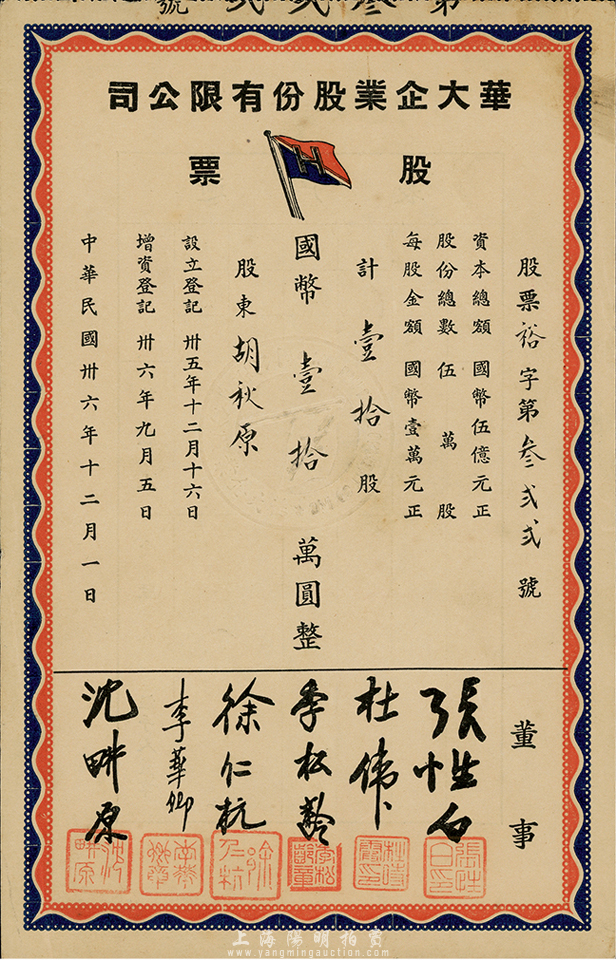 第叁弍弍號
華大企業股份有限公司
股票
H
股票裕字第叁弍弍號
資本總額 國幣伍億元正
股份總數 伍萬股
每股金額 國幣壹萬元正
計壹拾股
國幣壹拾萬圓整
股東胡秋原
設立登記 卅五年十二月十六日
增資登記 卅六年九月五日
中華民國卅六年十二月一日
董事
張惟白
杜偉
季松齡
徐仁杭
李華卿
沈畊原
上海陽明拍賣
www.yangmingauction.com